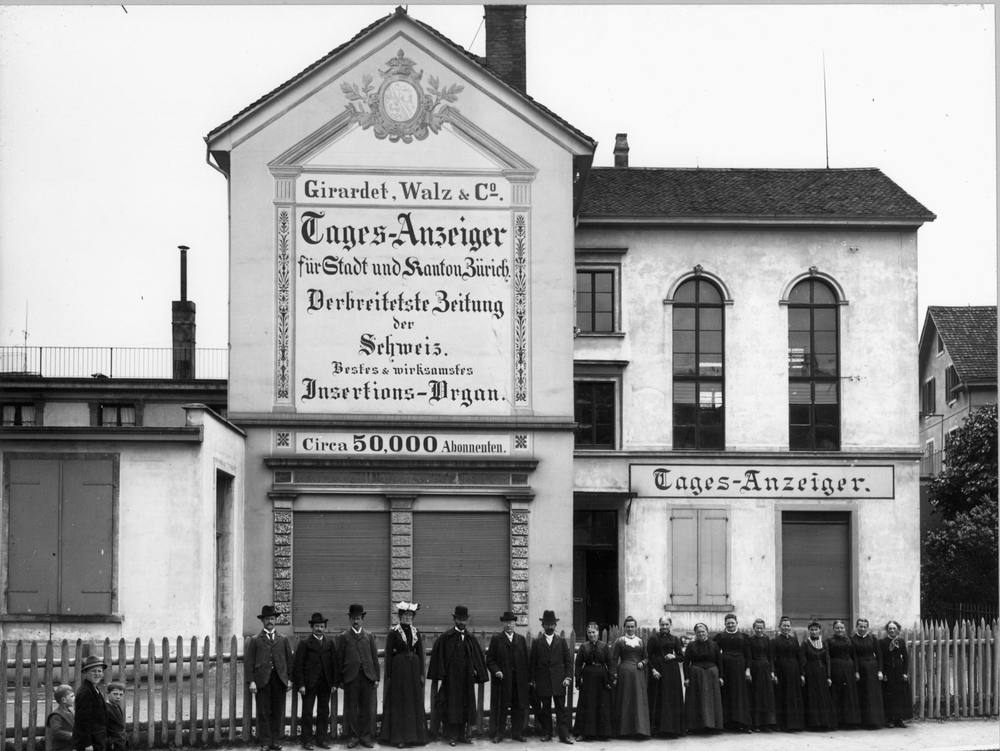 Girardet, Walz & Co.
Tages-Anzeiger
für Stadt und Kanton Zürich.
Verbreitetste Zeitung
der
Schweiz.
Bestes & wirksamstes
Insertions-Organ.
Circa 50,000 Abonnenten.
Tages-Anzeiger.